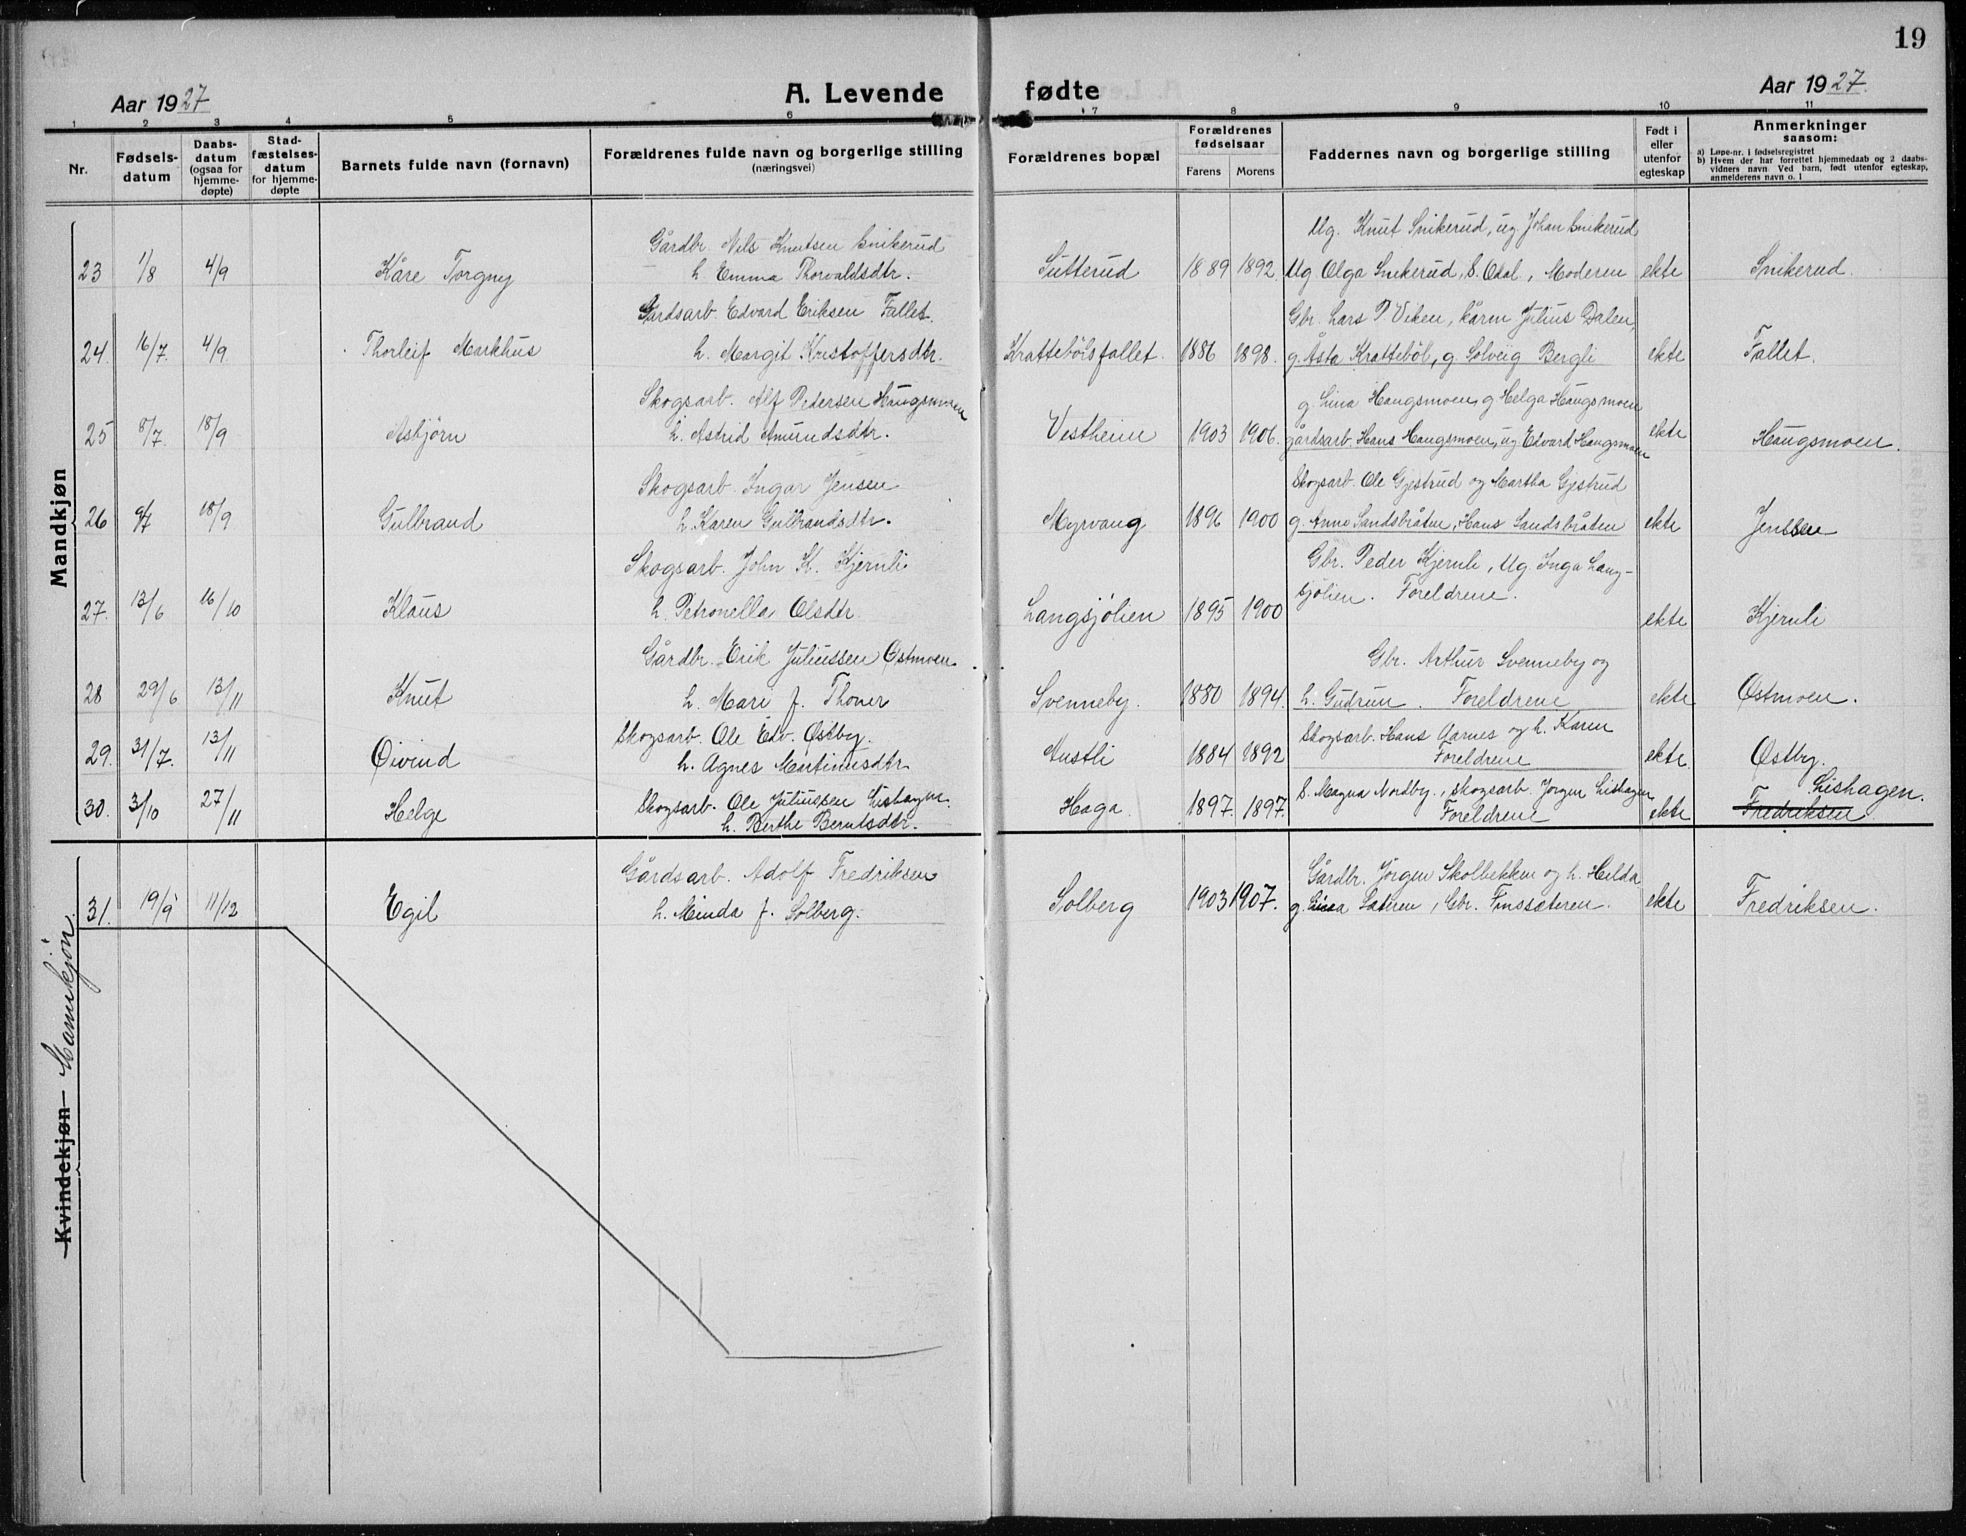 19
Aar 1927 A. Levende fødte Aar 1927.
1 2 3 4 5 6 7 8 9 10 11
Nr. Fødsels-datum Daabs-datum (ogsaa for hjemme-døpte) Stad-fæstelses-datum for hjemme-døpte Barnets fulde navn (fornavn) Forældrenes fulde navn og borgerlige stilling (næringsvei) Forældrenes bopæl Forældrenes fødselsaar Farens Morens Faddernes navn og borgerlige stilling Født i eller utenfor egteskap Anmerkninger saasom:
a) Løpe-nr. i fødselsregistret
b) Hvem der har forrettet hjemmedaab og 2 daabs-vidners navn. Ved barn, født utenfor egteskap, anmelderens navn o. l
Mandkjøn
Gårdbr. Nils Knutsen Snikerud Ug. Knut Snikerud, ug Johan Snikerud
23 1/8 4/9 Kåre Torgny h. Emma Thorvaldsdtr. Sutterud 1889 1892 Ug Olga Snikerud, S. Odal, Moderen ekte Snikerud.
Gårdsarb. Edvard Eriksen Fallet. Gbr. Lars P. Viken, Julius Dalen,
24. 16/7. 4/9. Thorleif Markhus h. Margit Kristoffersdtr. Krattebölsfallet. 1886 1898. g. Asta Kratteböl, g. Solveig Bergli ekte Fallet.
Skogsarb. Alf Pedersen Haugsmoen g. Lina Haugsmoen, g Helga Haugsmoen
25 8/7. 18/9 Asbjörn h. Astrid Amundsdtr. Vestheim 1903 1906. gårdsarb. Hans Haugsmoen, ug Edvard Haugsmoen ekte Haugsmoen.
Skogsarb. Ingar Jensen Skogsarb. Ole Gjestrud og Martha Gjestrud
26 9/7 18/9 Gulbrand h. Karen Gulbrandsdtr. Myrvang 1896 1900 g. Anne Sandsbråten, Hans Sandsbråten ekte Jenssen
Skogsarb. John K. Kjernli Gbr. Peder Kjernli, Ug. Inga Lang-
27. 13/6 16/10 Klaus h. Petronella Olsdtr. Langsjölien 1895 1900 sjölien. Foreldrene. ekte Kjernli
Gårdbr. Erik Juliussen Østmoen. Gbr. Arthur Svenneby og
28 29/6 13/11 Knut h. Mari f. Thoner Svenneby. 1880 1894. h. Gudrun. Foreldrene ekte Østmoen.
Skogsarb. Ole Edv. Østby. Skogsarb. Hans Aarnes og h. Karen
29. 31/7. 13/11 Öivind h. Agnes Martinusdtr. Austli 1884 1892 Foreldrene ekte. Østby.
Skogsarb. Ole Juliussen Lishagen. S. Magna Nordby, skogsarb. Jörgen Lishagen Lishagen.
30. 3/10 27/11 Helge h. Berthe Berntsdtr. Haga. 1897. 1897. Foreldrene ekte Fredriksen
Kvindekjøn Mannkjön.
Gårdsarb. Adolf Fredriksen Gårdbr. Jörgen Skolbekken og h. Hilda
31. 19/9 11/12 Egil h. Minda f. Solberg. Solberg 1903 1907. g. Sæteren, Gbr. Finssæteren. ekte Fredriksen.